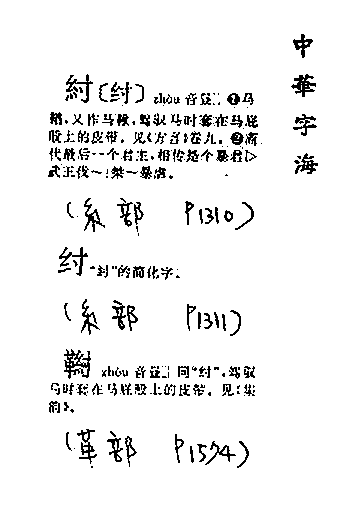 中華字海
紂〔纣〕 zhòu 音 ❶马
鞧,又作马楸,驾驭马时套在马屁
股上的皮带。见《方言》卷九。❷商
代最后一个君主,相传是个暴君▷
武王伐~|桀~暴虐。
(糸部 P1310)
纣 "紂"的简化字。
(糸部 P1311)
zhòu 音 同"紂",驾驭
马时套在马屁股上的皮带。见《集
韵》。
(革部 P1574)